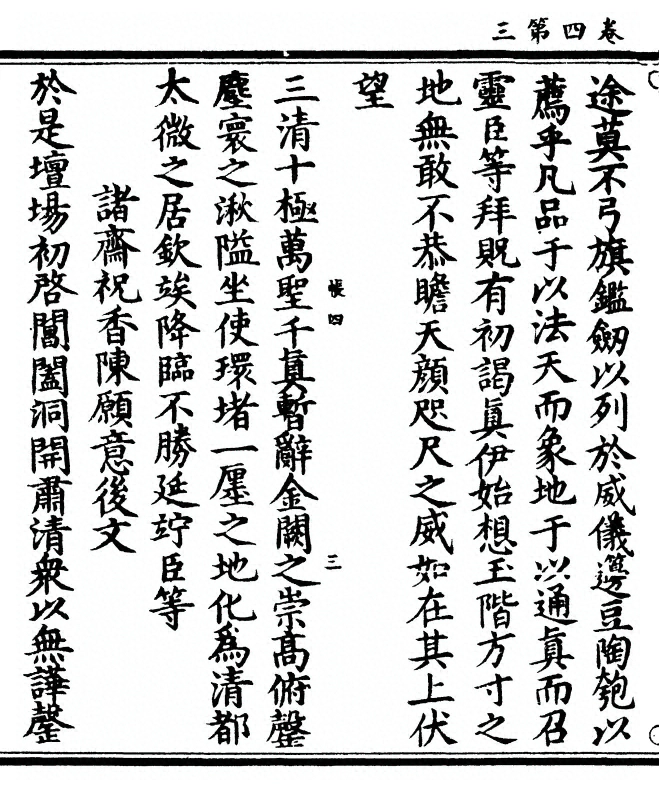 卷四第三
途莫不弓旗鑑劒以列於威儀籩豆陶匏以
薦乎凡品于以法天而象地于以通眞而召
靈臣等拜貺有初謁眞伊始想玉階方寸之
地無敢不恭瞻天顔咫尺之威如在其上伏
望
三清十極萬聖千眞暫辭金闕之崇高俯罄
塵寰之湫隘坐使環堵一廛之地化爲清都
太微之居欽竢降臨不勝延竚臣等
諸齋祝香陳願意後文
於是壇場初啓閶闔洞開肅清衆以無譁罄
悵四
三